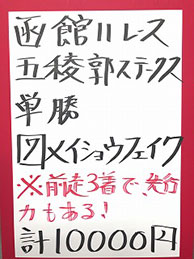 函館11レース
五稜郭ステークス
単勝
7メイショウフェイク
※前走3着で、先行
力もある!
計10000円